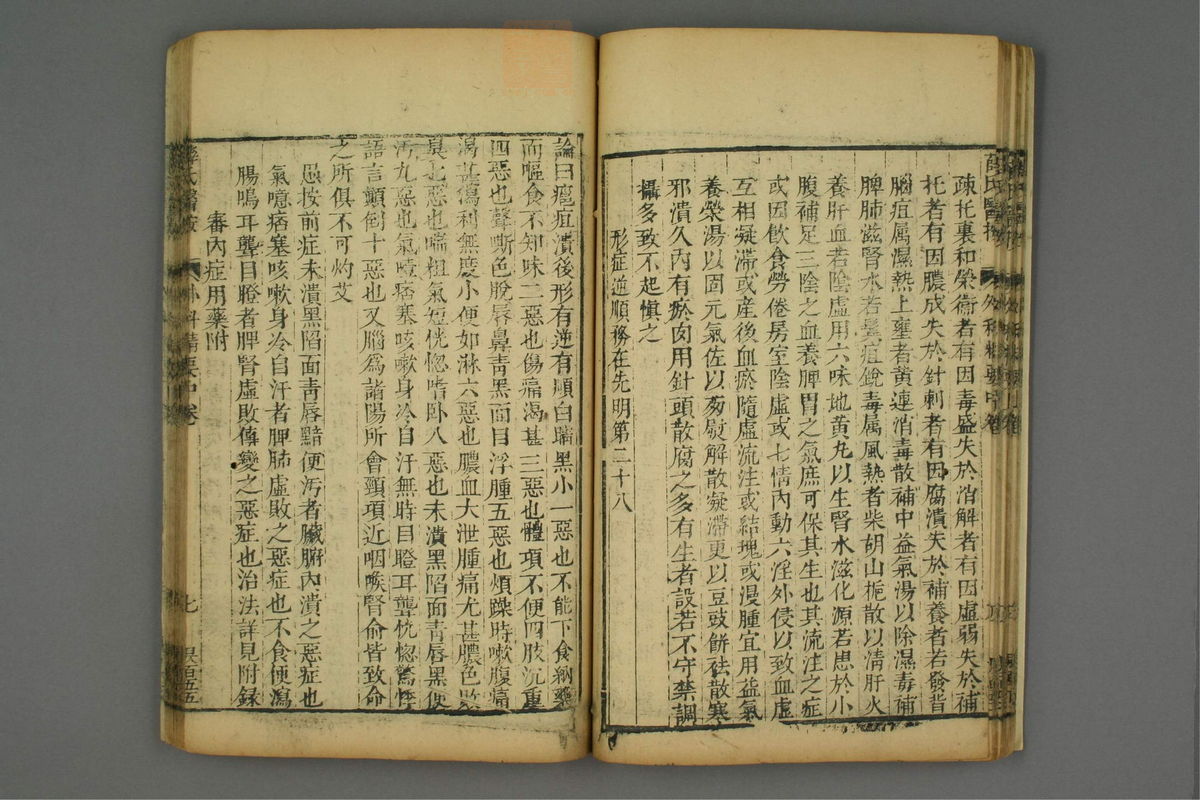 疎托裏和榮衞者有因毒盛失於消解者有因虛弱失於補
托者有因膿成失於針刺者有因腐潰失於補養者若發背
腦疽属濕熱上壅者黄連消毒散補中益氣湯以除濕毒補
脾肺滋腎水若鬂疽銳毒属風熱者柴胡山梔散以清肝火
養肝血若陰虛用六味地黄丸以生腎水滋化源若患於小
腹補足三陰之血養脾胃之氣庶可保其生也其流注之症
或因飲食勞倦房室陰虛或七情內動六淫外侵以致血虛
互相凝滯或産後血瘀隨虛流注或結塊或漫腫宜用益氣
養榮湯以固元氣佐以𦬊熨解散凝滯更以豆豉餅祛散寒
邪潰久內有瘀肉用針頭散腐之多有生者設若不守禁調
攝多致不起慎之
形症逆順務在先明第二十八
論曰瘡疽潰後形有逆有順白睛黑小一惡也不能下食納藥
而嘔食不知味二惡也傷痛渴甚三惡也體項不便四肢沉重
四惡也聲嘶色脫唇鼻青黑面目浮腫五惡也煩躁時嗽腹痛
渴甚瀉利無度小便如淋六惡也膿血大泄腫痛尤甚膿色敗
臭七惡也喘粗氣短恍惚嗜卧八惡也未潰黑陷面青唇黑便
汚九惡也氣噫痞塞咳嗽身冷自汗無時目瞪耳聾恍惚驚悸
語言顛倒十惡也又腦為諸陽所會頸項近咽喉腎俞皆致命
之所俱不可灼艾
愚按前症未潰黑陷面青唇黯便汚者臟腑內潰之惡症也
氣噫痞塞咳嗽身冷自汗者脾肺虛敗之惡症也不食便瀉
腸鳴耳聾目瞪者脾腎虛敗傳變之惡症也治法詳見附錄
審內症用藥附
薛氏醫按
外科精要中卷
七